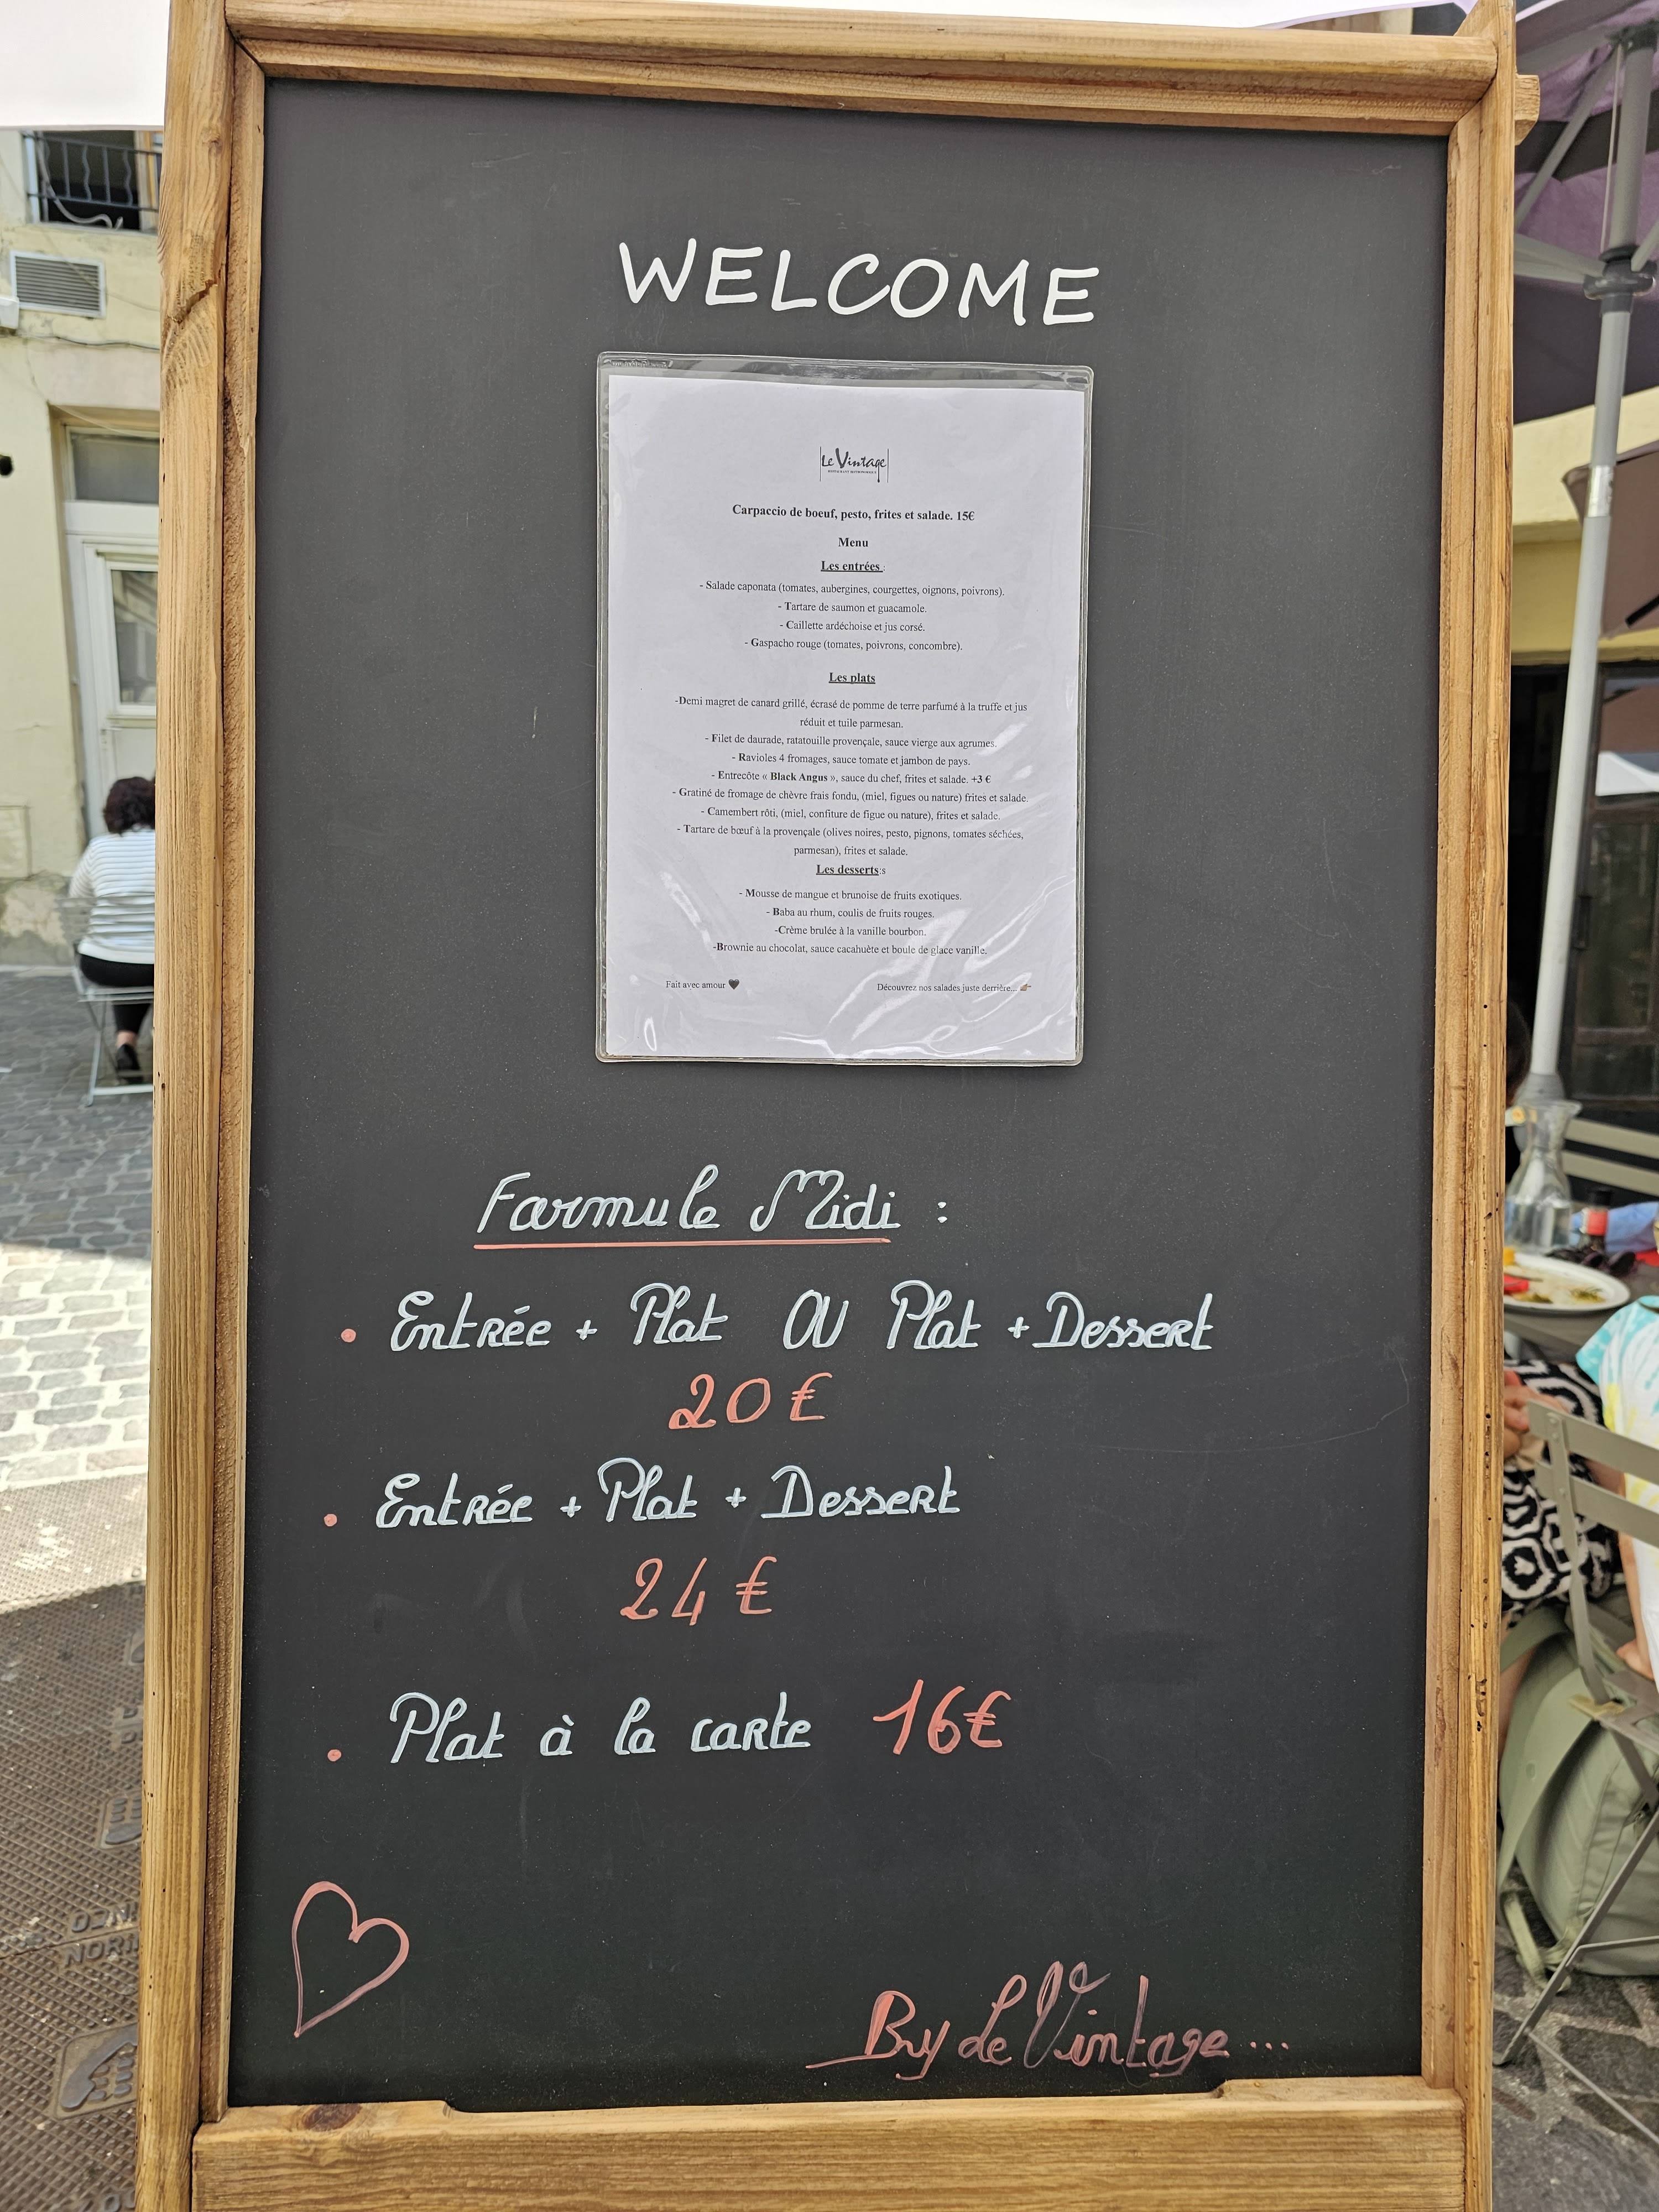 WELCOME
Le Vintage
Carpaccio de boeuf, pesto, frites et salade. 15€
Menu
Les entrées :
- Salade caponata (tomates, aubergines, courgettes, oignons, poivrons).
- Tartare de saumon et guacamole.
- Caillette ardéchoise et jus corsé.
- Gaspacho rouge (tomates, poivrons, concombre).
Les plats
-Demi magret de canard grillé, écrasé de pomme de terre parfumé à la truffe et jus
réduit et tuile parmesan.
- Filet de daurade, ratatouille provençale, sauce vierge aux agrumes.
- Ravioles 4 fromages, sauce tomate et jambon de pays.
- Entrecôte « Black Angus », sauce du chef, frites et salade. +3 €
- Gratiné de fromage de chèvre frais fondu, (miel, figues ou nature) frites et salade.
- Camembert rôti, (miel, confiture de figue ou nature), frites et salade.
- Tartare de bœuf à la provençale (olives noires, pesto, pignons, tomates séchées,
parmesan), frites et salade.
Les desserts:s
- Mousse de mangue et brunoise de fruits exotiques.
- Baba au rhum, coulis de fruits rouges.
-Crème brulée à la vanille bourbon.
-Brownie au chocolat, sauce cacahuète et boule de glace vanille.
Fait avec amour 🖤 Découvrez nos salades juste derrière...
Formule Midi :
• Entrée + Plat OU Plat + Dessert
20 €
• Entrée + Plat + Dessert
24 €
• Plat à la carte 16€
By Le Vintage ...